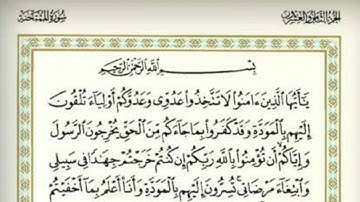 الجزء الثامن والعشرون
سورة الممتحنة
بسم الله الرحمن الرحيم
يَٰٓأَيُّهَا ٱلَّذِينَ ءَامَنُوا۟ لَا تَتَّخِذُوا۟ عَدُوِّى وَعَدُوَّكُمْ أَوْلِيَآءَ تُلْقُونَ
إِلَيْهِم بِٱلْمَوَدَّةِ وَقَدْ كَفَرُوا۟ بِمَا جَآءَكُم مِّنَ ٱلْحَقِّ يُخْرِجُونَ ٱلرَّسُولَ
وَإِيَّاكُمْ أَن تُؤْمِنُوا۟ بِٱللَّهِ رَبِّكُمْ إِن كُنتُمْ خَرَجْتُمْ جِهَٰدًا فِى سَبِيلِى
وَٱبْتِغَآءَ مَرْضَاتِى تُسِرُّونَ إِلَيْهِم بِٱلْمَوَدَّةِ وَأَنَا۠ أَعْلَمُ بِمَآ أَخْفَيْتُمْ